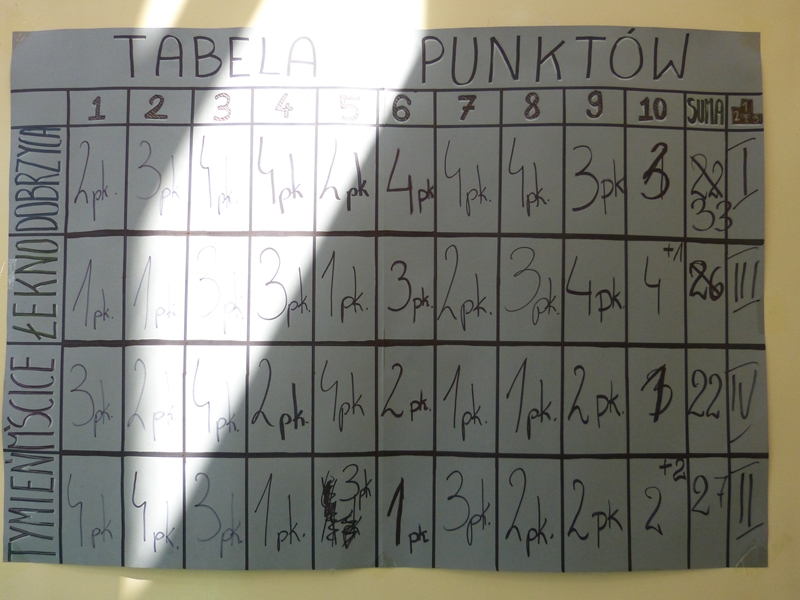 TABELA PUNKTÓW
1 2 3 4 5 6 7 8 9 10 SUMA
DOBRZYCA 2pk. 3pk 4pk 4pk 2pk 4pk 4pk 4pk. 3pk 33 I
ŁEKNO 1pk. 1pk. 3pk. 3pk. 1pk. 3pk. 2pk. 3pk. 4pk 4 +1 26 III
MŚCICE 3pk. 2pk. 4pk. 2pk. 4pk 2pk. 1pk. 1pk. 2pk. 22 IV
TYMIEŃ 4pk 4pk. 3pk 1pk. 3pk 1pk 3pk. 2pk. 2pk 2 +2 27 II